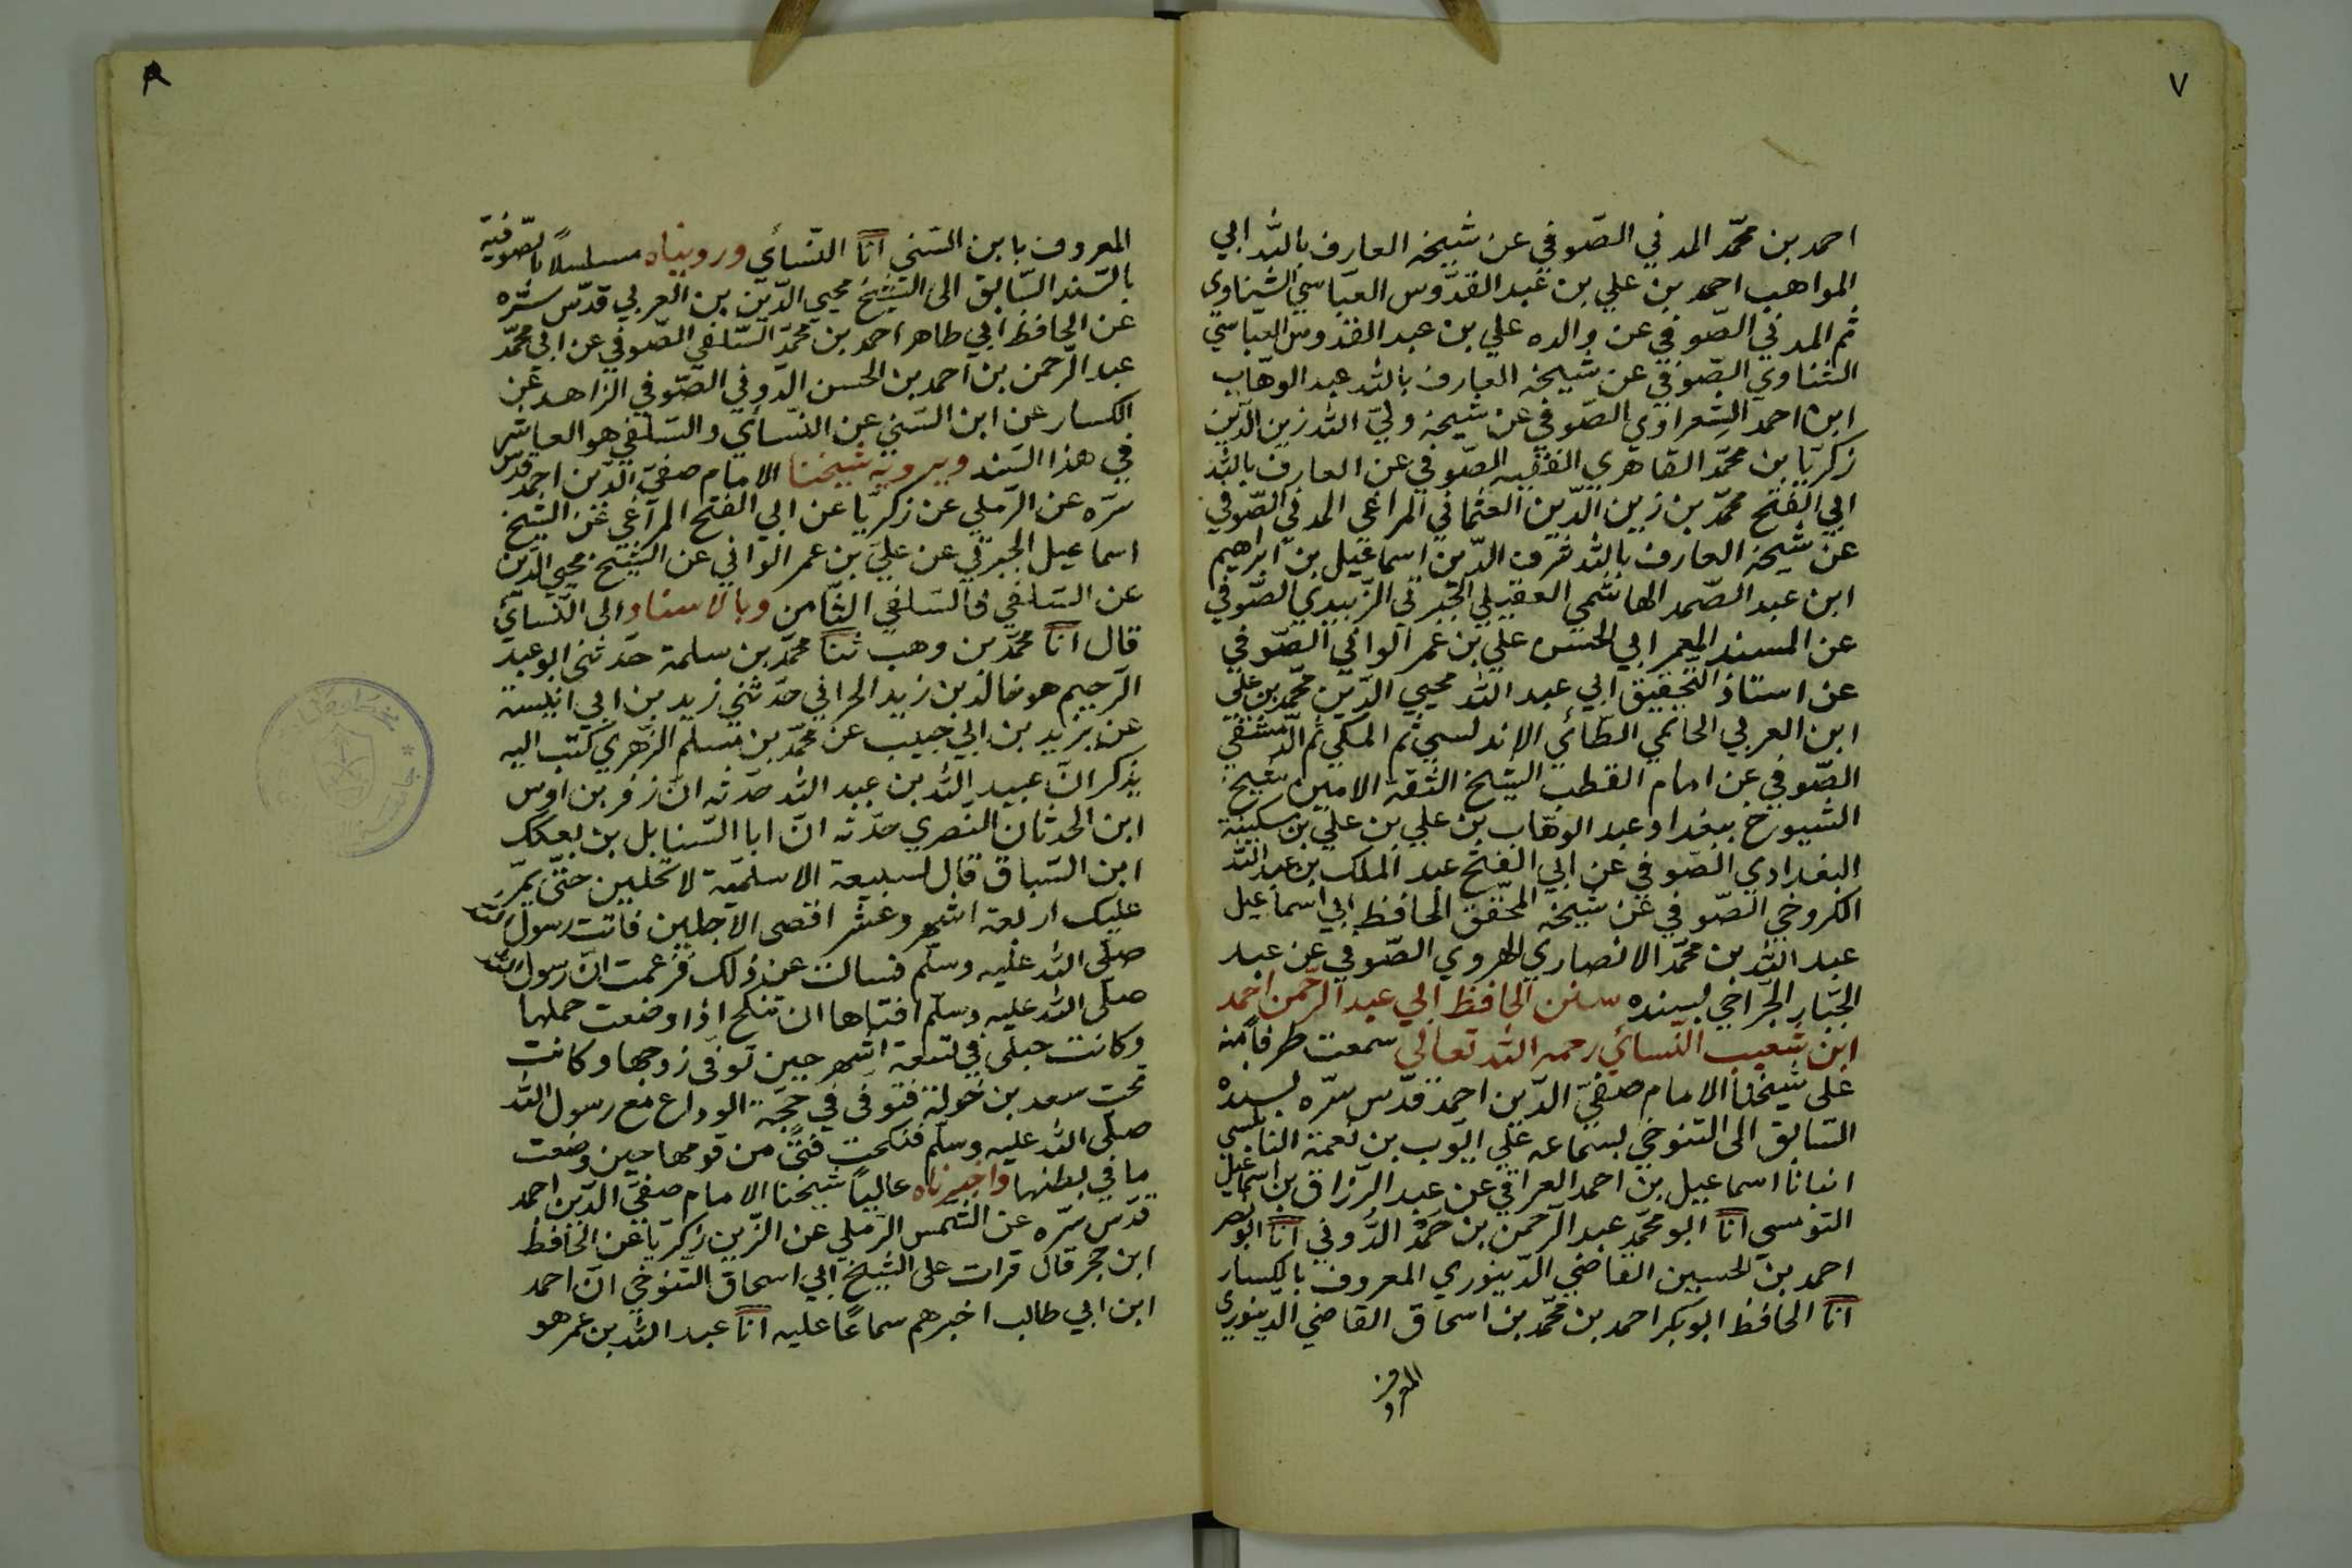 ٧
احمد بن محمّد المدني الصّوفي عن شيخه العارف بالله ابي
المواهب احمد بن علي بن عبد القدّوس العبّاسي الشناوي
ثم المدني الصّوفي عن والده علي بن عبد القدوس العبّاسي
الشناوي الصّوفي عن شيخه العارف بالله عبد الوهّاب
ابن احمد الشعراوي الصّوفي عن شيخه وليّ الله زين الدّين
زكريّا بن محمّد القاهري الفقيه الصّوفي عن العارف بالله
ابي الفتح محمّد بن زين الدّين العثماني المراغي المدني الصّوفي
عن شيخه العارف بالله شرف الدّين اسماعيل بن ابراهيم
ابن عبد الصّمد الهاشمي العقيلي الجبرتي الزّبيدي الصّوفي
عن المسند المعمر ابي الحسن علي بن عمر الواني الصّوفي
عن استاذ التحقيق ابي عبد الله محيي الدّين محمّد بن علي
ابن العربي الحاتمي الطّائي الاندلسي ثم المكي ثم الدّمشقي
الصّوفي عن امام القطب الشيخ الثقة الامين شيخ
الشيوخ ببغداد عبد الوهّاب بن علي بن علي بن سكينة
البغدادي الصّوفي عن ابي الفتح عبد الملك بن عبد الله
الكروخي الصّوفي عن شيخه المحقّق الحافظ ابي اسماعيل
عبد الله بن محمّد الانصاري الهروي الصّوفي عن عبد
الجبّار الجرّاحي بسنده سنن الحافظ ابي عبد الرّحمن احمد
ابن شعيب النّسائي رحمه الله تعالى سمعت طرفاً منه
على شيخنا الامام صفيّ الدّين احمد قدّس سرّه بسنده
السّابق الى التنوخي بسماعه على ايّوب بن نعمة النابلسي
انبانا اسماعيل بن احمد العراقي عن عبد الرّزاق بن اسماعيل
القومسي انا ابو محمّد عبد الرّحمن بن حَمْد الدُّوني انا ابو نصر
احمد بن الحسين القاضي الدّينوري المعروف بالكسار
انا الحافظ ابو بكر احمد بن محمّد بن اسحاق القاضي الدّينوري
المعروف
٨
المعروف بابن السّني انا النّسائي ورويناه مسلسلاً بالصّوفية
بالسّند السّابق الى الشّيخ محيي الدّين بن العربي قدّس سرّه
عن الحافظ ابي طاهر احمد بن محمّد السّلفي الصّوفي عن ابي محمّد
عبد الرّحمن بن احمد بن الحسن الدّوني الصّوفي الزاهد عن
الكسار عن ابن السّني عن النّسائي والسّلفي هو العاشر
في هذا السّند ويرويه شيخنا الامام صفيّ الدّين احمد قدّس
سرّه عن الرّملي عن زكريّا عن ابي الفتح المراغي عن الشيخ
اسماعيل الجبرتي عن عليّ بن عمر الواني عن الشّيخ محيي الدّين
عن السّلفي فالسّلفي الثّامن وبالاسناد الى النّسائي
قال انا محمّد بن وهب ثنا محمّد بن سلمة حدّثني ابو عبد
الرّحيم هو خالد بن زيد الحراني حدّثني زيد بن ابي انيسة
عن يزيد بن ابي حبيب عن محمّد بن مسلم الزّهري كتب اليه
يذكر انّ عبيد الله بن عبد الله حدّثه انّ زفر بن اوس
ابن الحدثان النّصري حدّثه انّ ابا السّنابل بن بعكك
ابن السّباق قال لسبيعة الاسلميّة لا تحلّين حتّى يمرّ
عليك اربعة اشهر وعشر اقصى الاجلين فاتت رسول الله
صلّى الله عليه وسلّم فسالت عن ذلك فزعمت انّ رسول الله
صلّى الله عليه وسلّم افتاها ان تنكح اذا وضعت حملها
وكانت حبلى في تسعة اشهر حين توفّى زوجها وكانت
تحت سعد بن خولة فتوفّى في حجّة الوداع مع رسول الله
صلّى الله عليه وسلّم فنكحت فتًى من قومها حين وضعت
ما في بطنها واخبرناه عالياً شيخنا الامام صفيّ الدّين احمد
قدّس سرّه عن الشّمس الرّملي عن الزّين زكريّا عن الحافظ
ابن حجر قال قرات على الشّيخ ابي اسحاق التنوخي انّ احمد
ابن ابي طالب اخبرهم سماعًا عليه انا عبد الله بن عمر هو